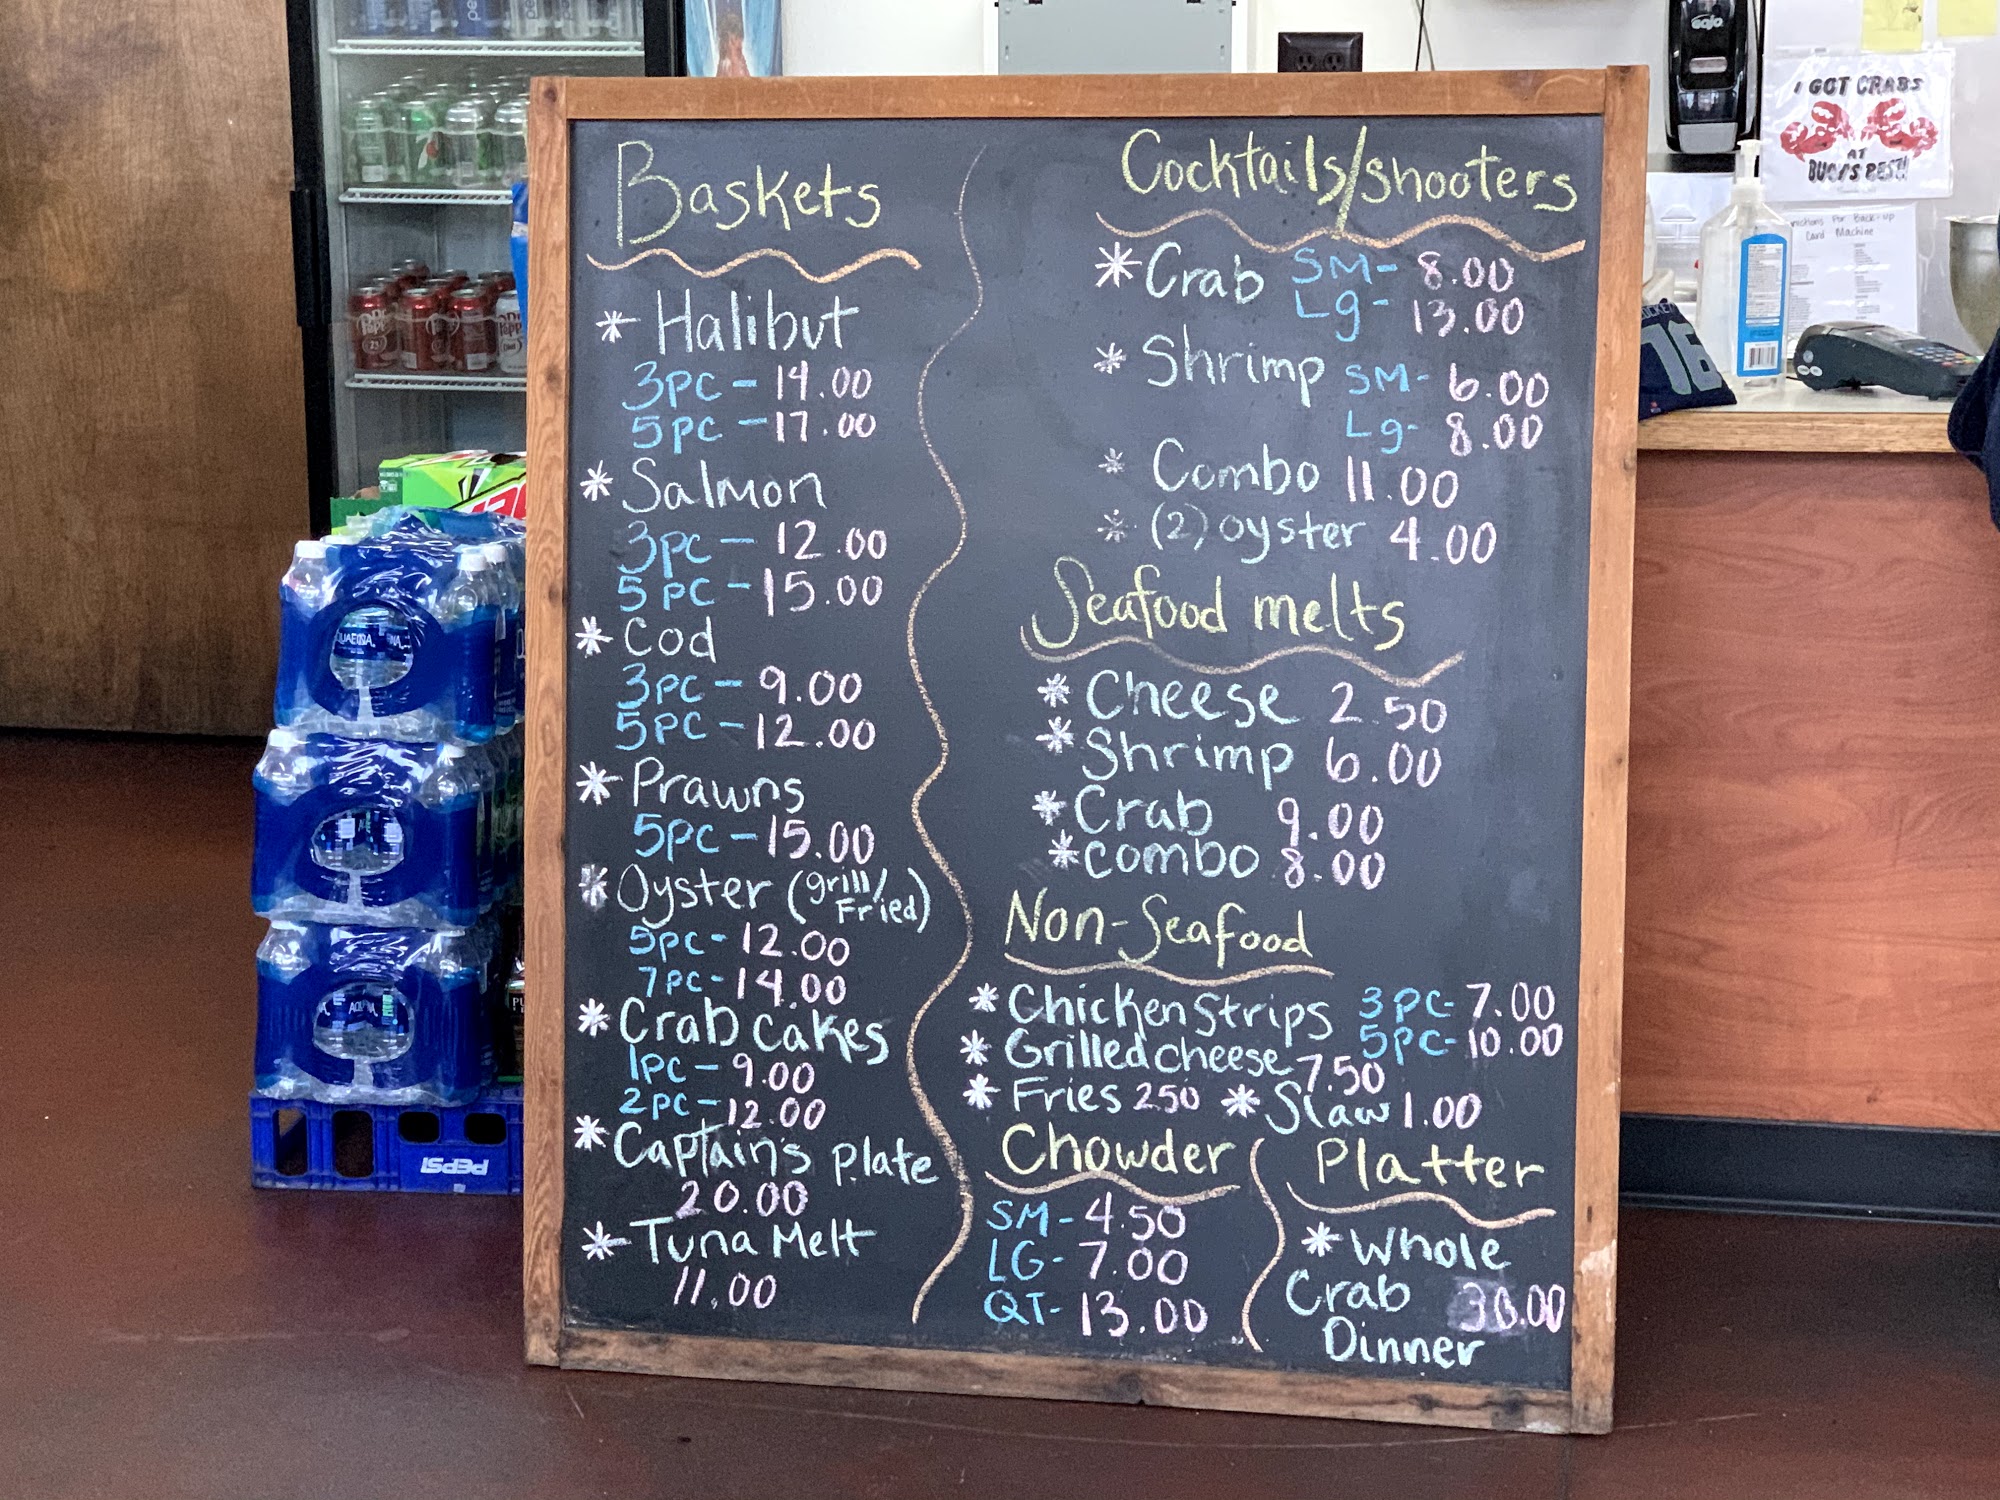 Baskets
* Halibut
3pc - 14.00
5pc - 17.00
* Salmon
3pc - 12.00
5pc - 15.00
* Cod
3pc - 9.00
5pc - 12.00
* Prawns
5pc - 15.00
* Oyster (grill/Fried)
5pc - 12.00
7pc - 14.00
* Crab Cakes
1pc - 9.00
2pc - 12.00
* Captain's Plate
20.00
* Tuna Melt
11.00
Cocktails/shooters
* Crab SM- 8.00
Lg- 13.00
* Shrimp SM- 6.00
Lg- 8.00
* Combo 11.00
* (2) oyster 4.00
Seafood melts
* Cheese 2.50
* Shrimp 6.00
* Crab 9.00
* combo 8.00
Non-Seafood
* Chicken Strips 3PC- 7.00
5PC- 10.00
* Grilled cheese 7.50
* Fries 250 * Slaw 1.00
Chowder
SM- 4.50
LG- 7.00
QT- 13.00
Platter
* Whole
Crab 30.00
Dinner
I GOT CRABS
AT
Card Machine
GOJO
AQUAFINA
PEPSI
16